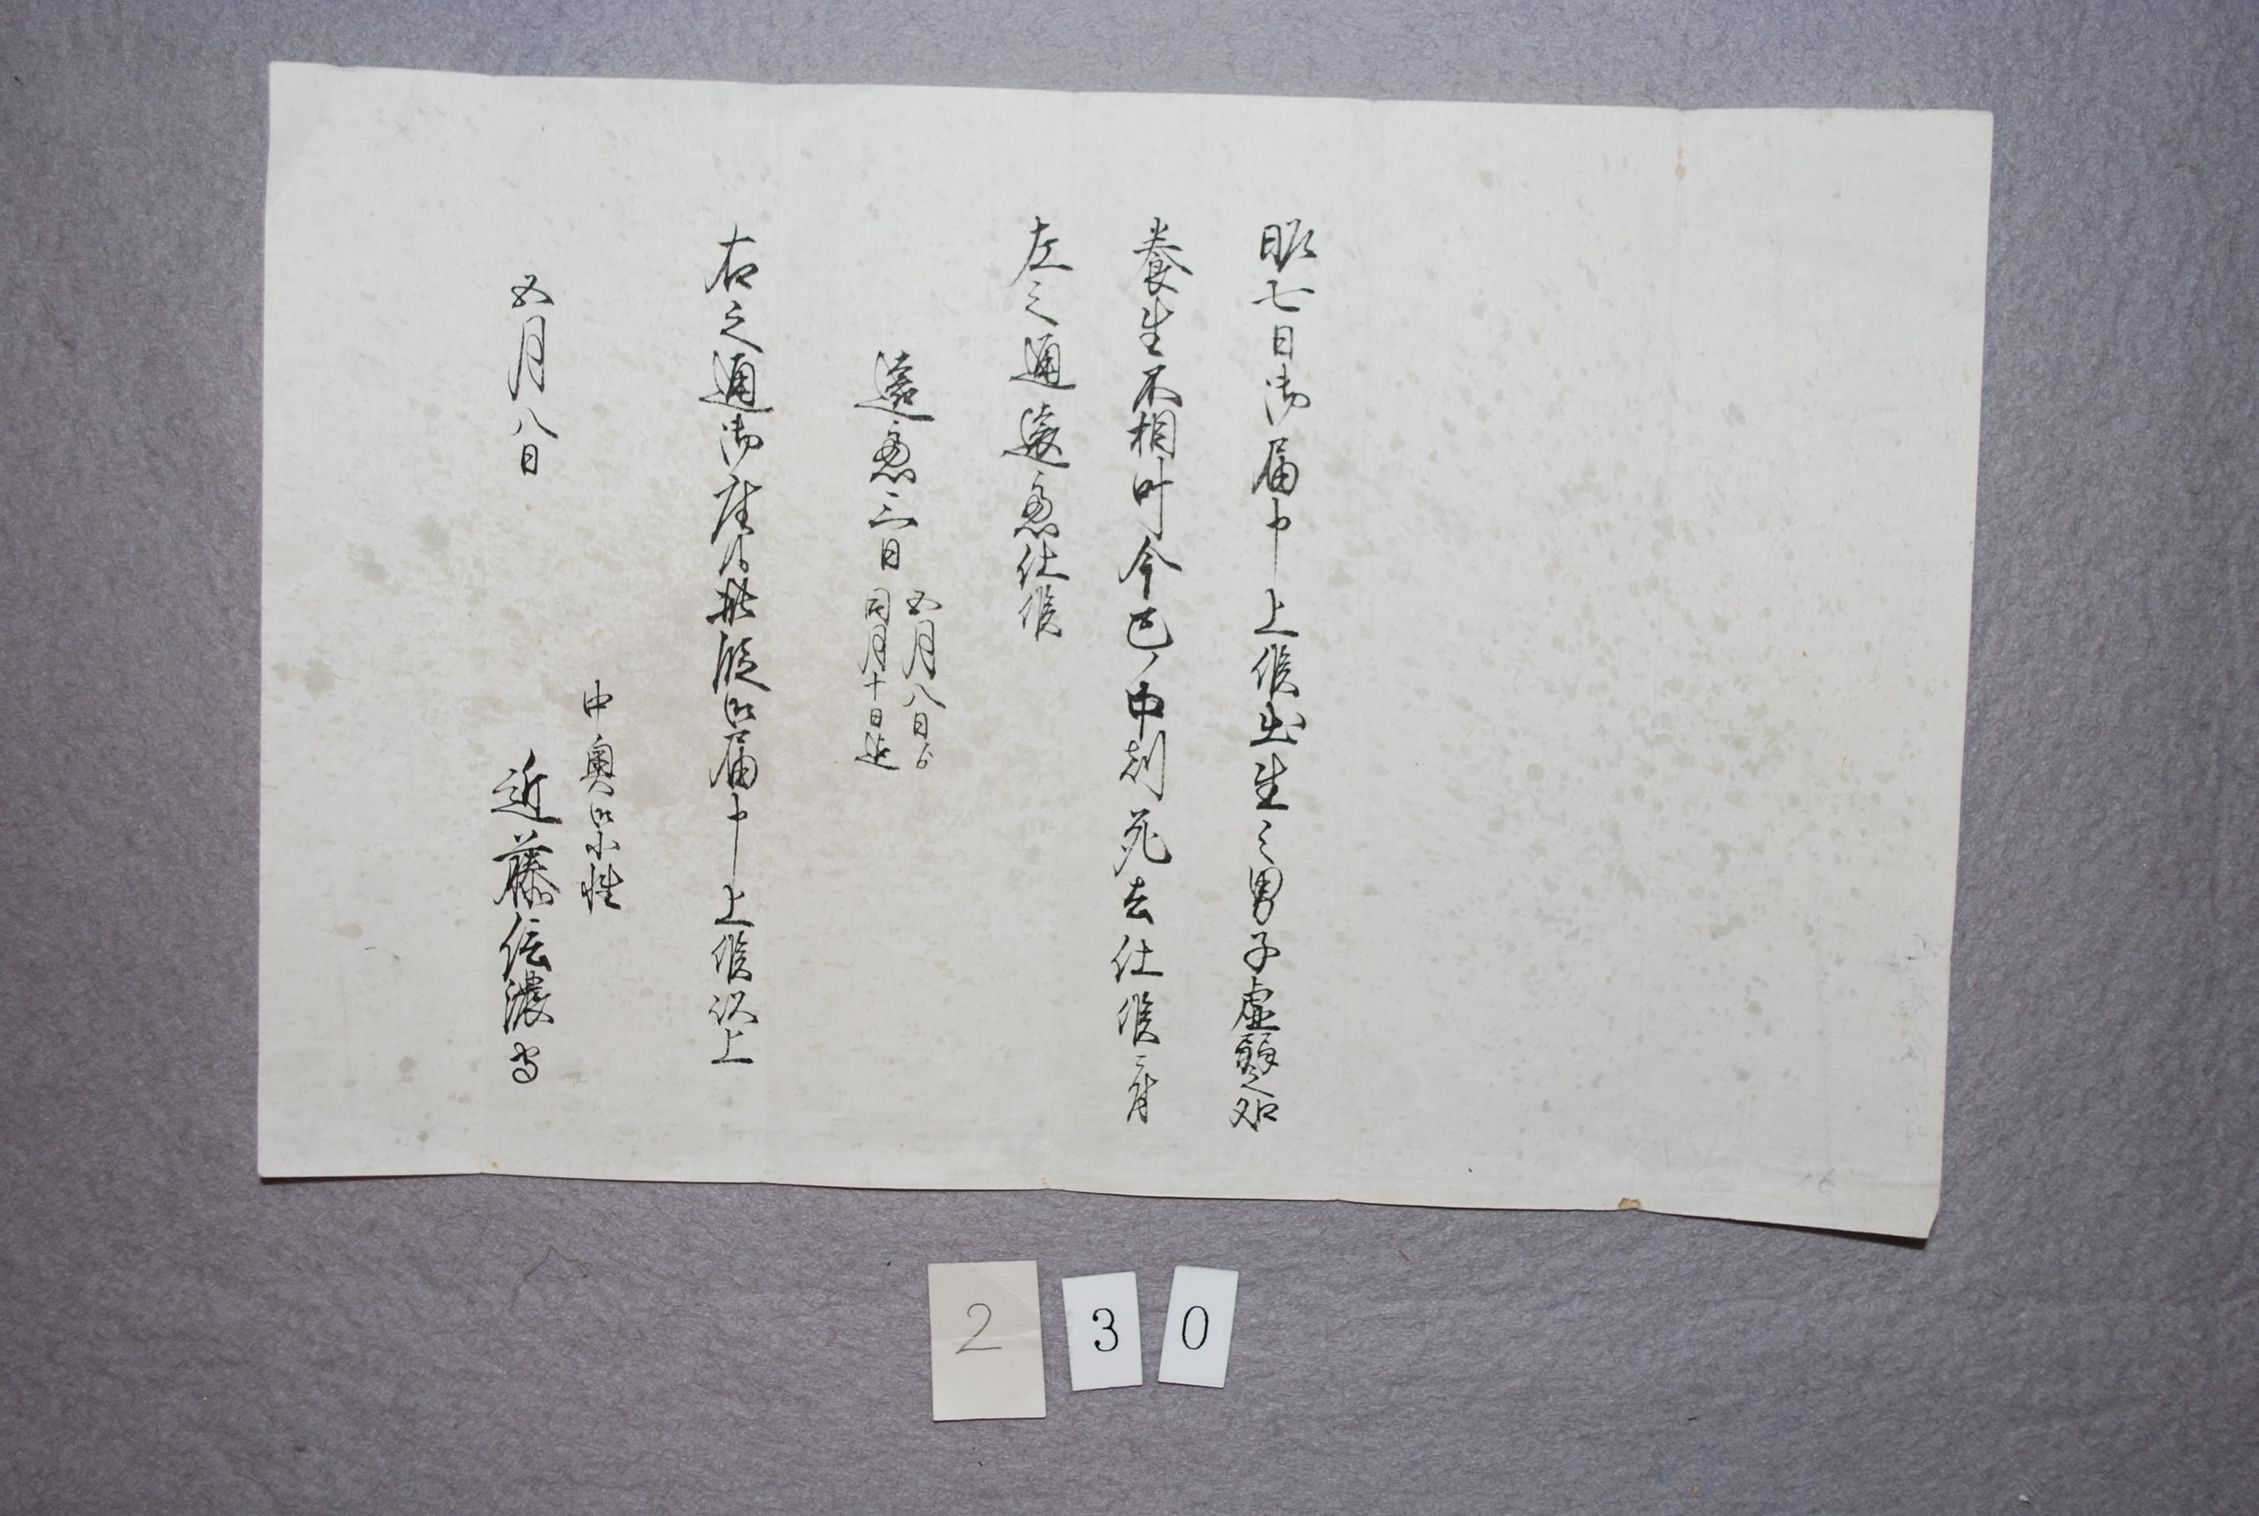 昨七日御届申上候出生之男子虚弱之処
養生不相叶今巳ノ中刻死去仕候ニ付
左之通遠慮仕候
遠慮三日
五月八日ゟ
同月十日迄
右之通御座候依此段御届申上候以上
五月八日
中奥御小性
近藤信濃守
2 3 0